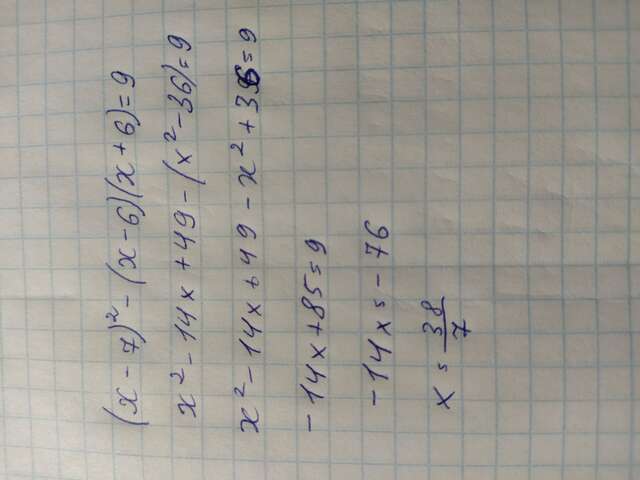 (x - 7)² - (x - 6)(x + 6) = 9
x² - 14x + 49 - (x² - 36) = 9
x² - 14x + 49 - x² + 36 = 9
- 14x + 85 = 9
- 14x = - 76
x = 38/7